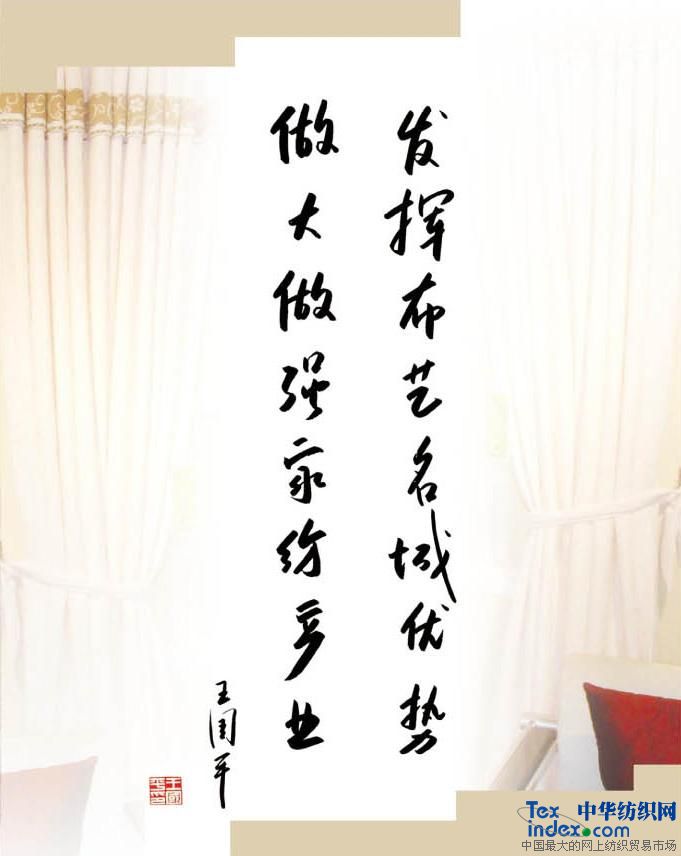 发挥布艺名城优势
做大做强家纺产业
王国平
Texindex.com 中华纺织网
中国最大的网上纺织贸易市场